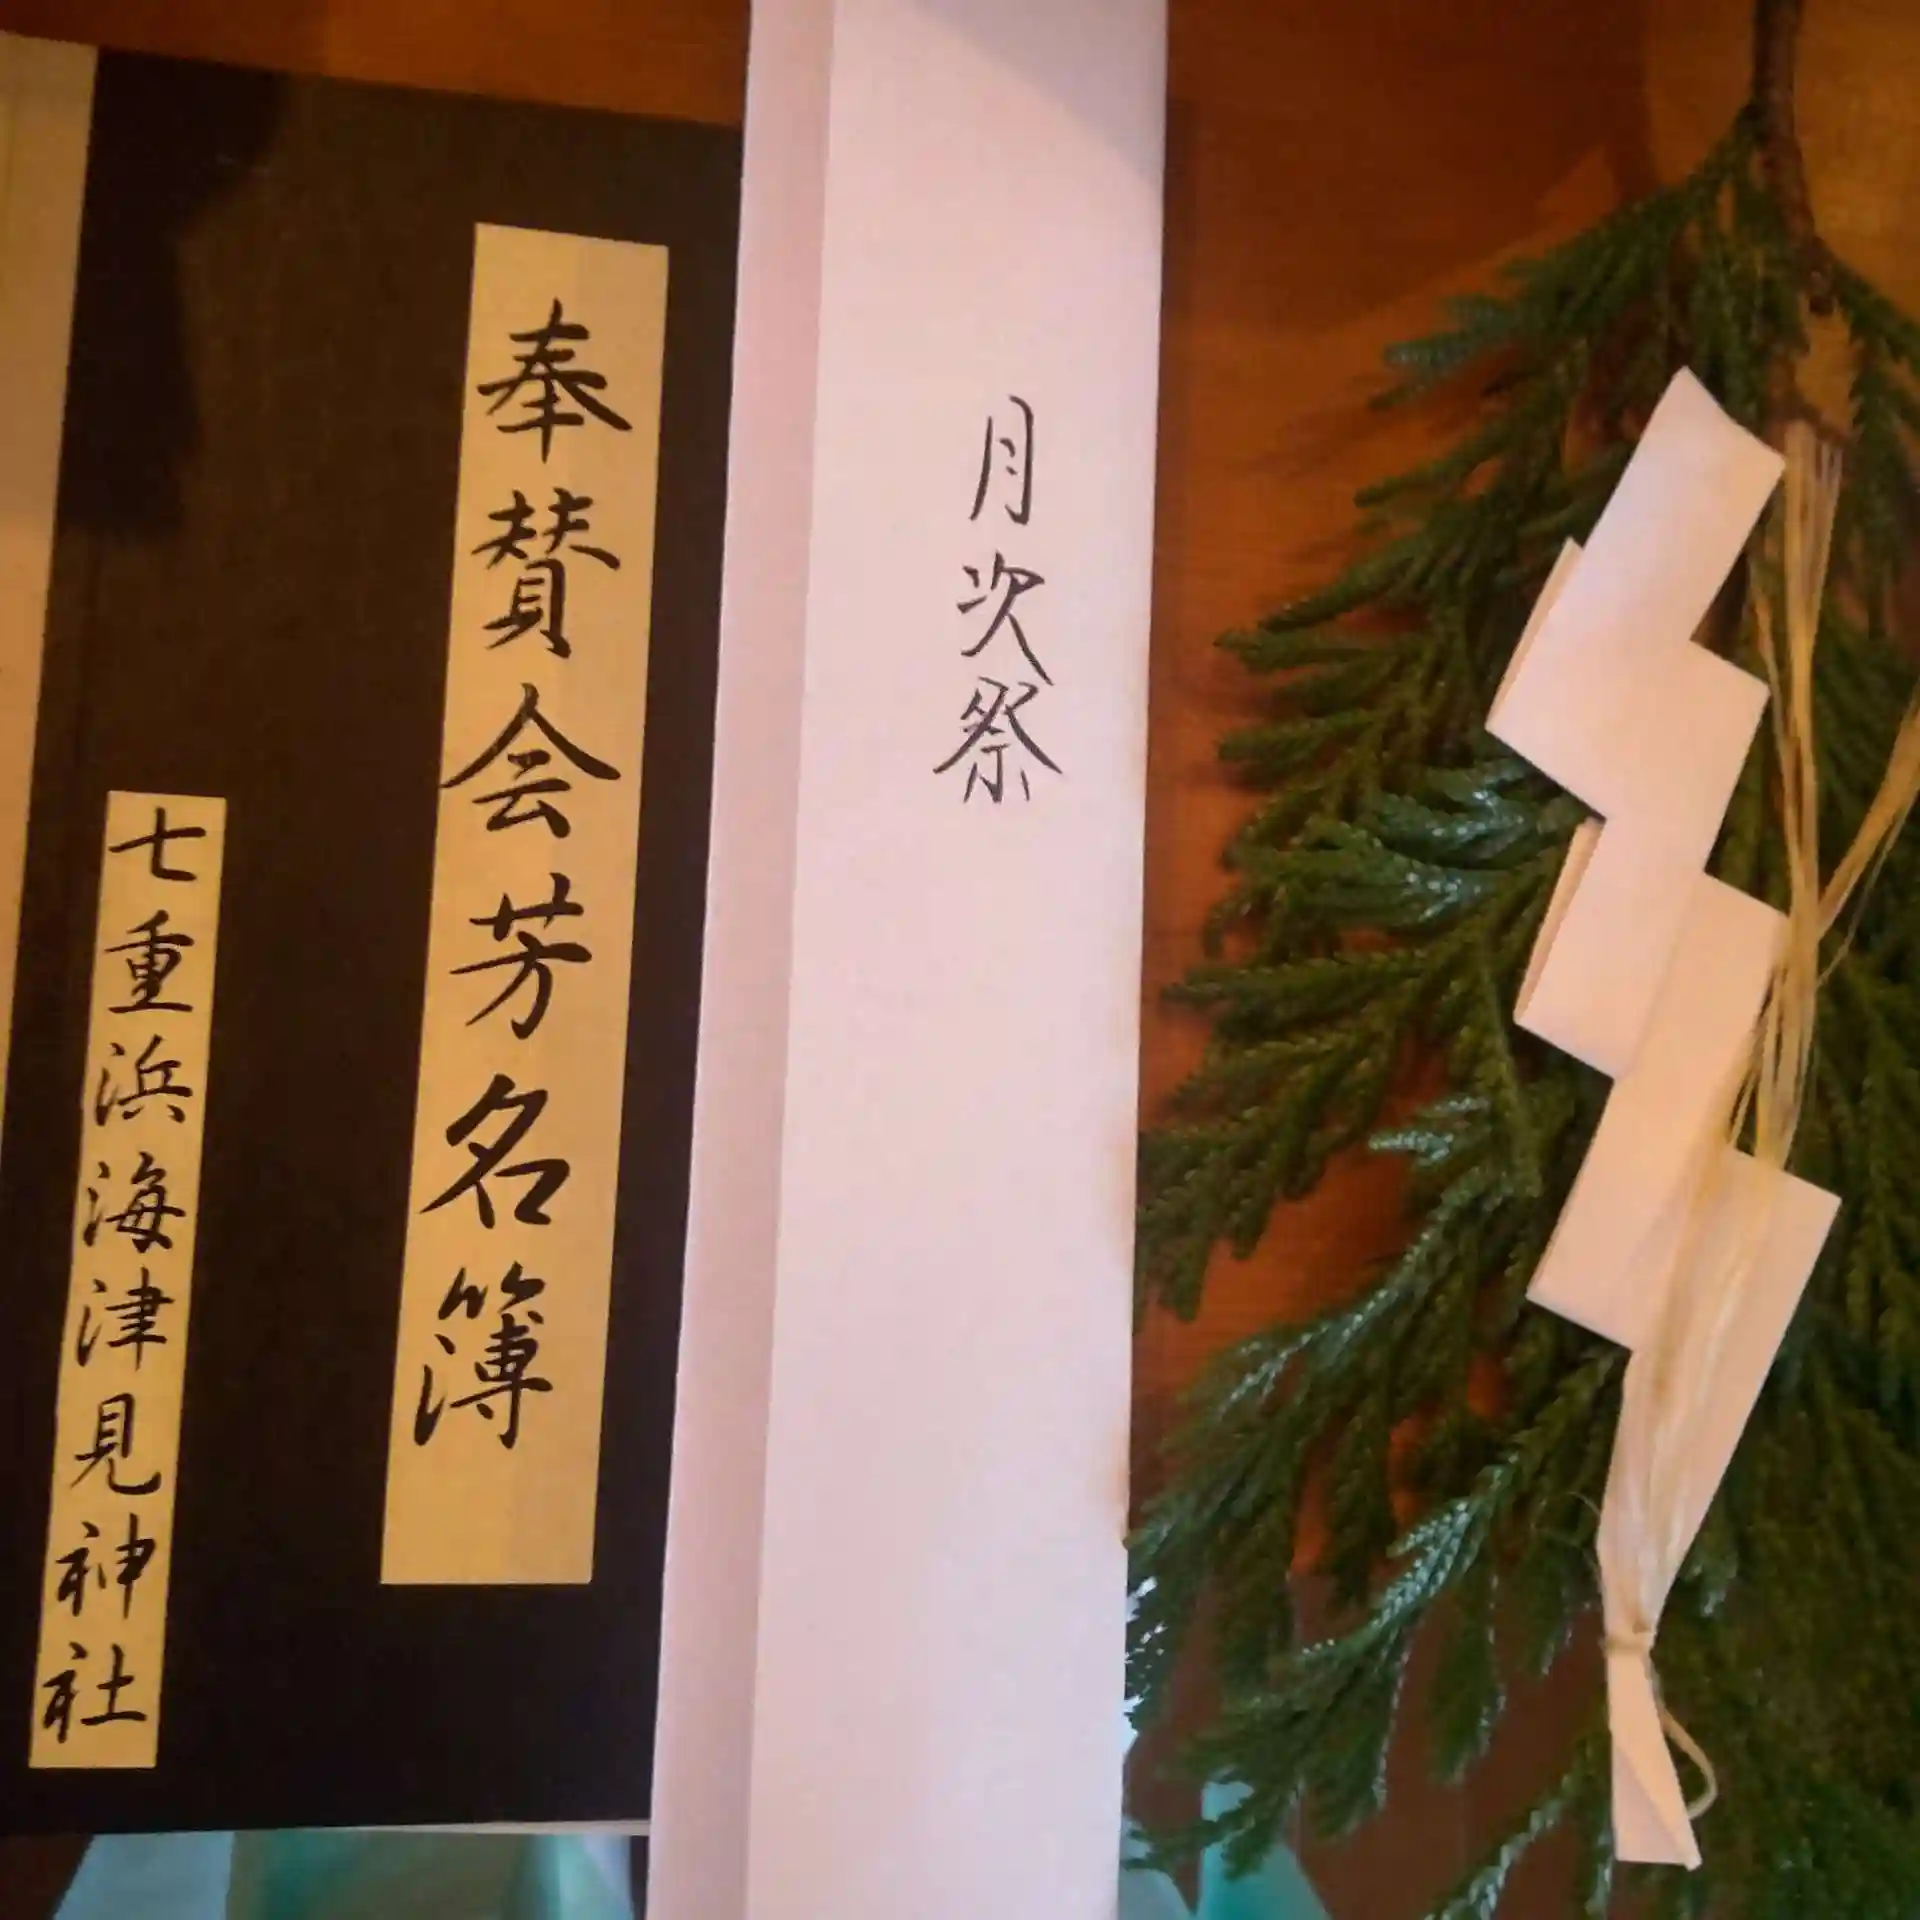 月次祭
奉賛会芳名簿
七重浜海津見神社